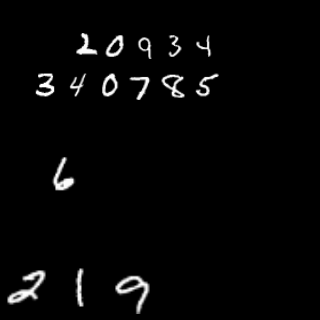 20934
340785
6
219